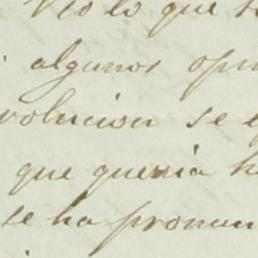 Veo lo que s
algunos opi
volucion se e
que queria h
se ha pronun